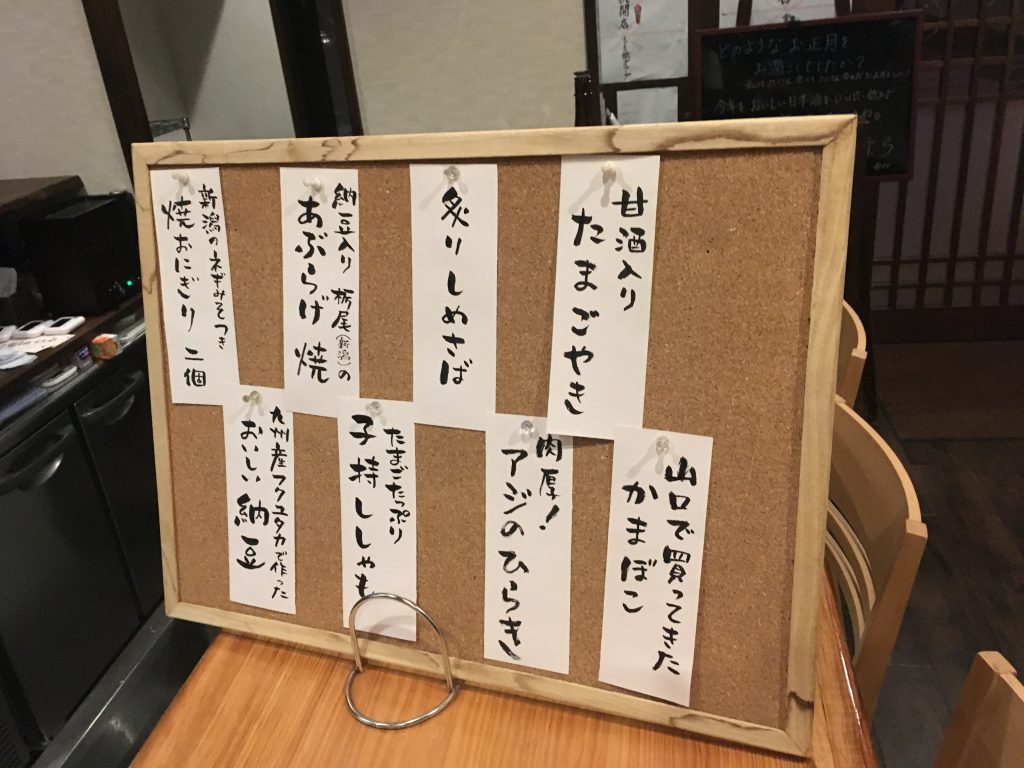 甘酒入り
たまごやき
炙りしめさば
納豆入り 栃尾(新潟)の
あぶらげ焼
新潟のネギみそつき
焼おにぎり 二個
山口で買ってきた
かまぼこ
肉厚!
アジのひらき
たまごたっぷり
子持ししゃも
九州産フクユタカで作った
おいしい納豆
どのようなお正月を
お過ごしでしたか?